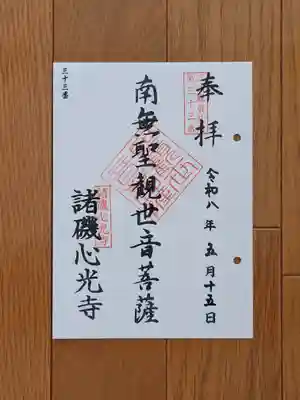 奉拝
令和八年五月十五日
第三十三番
南無聖観世音菩薩
諸磯心光寺
三十三番